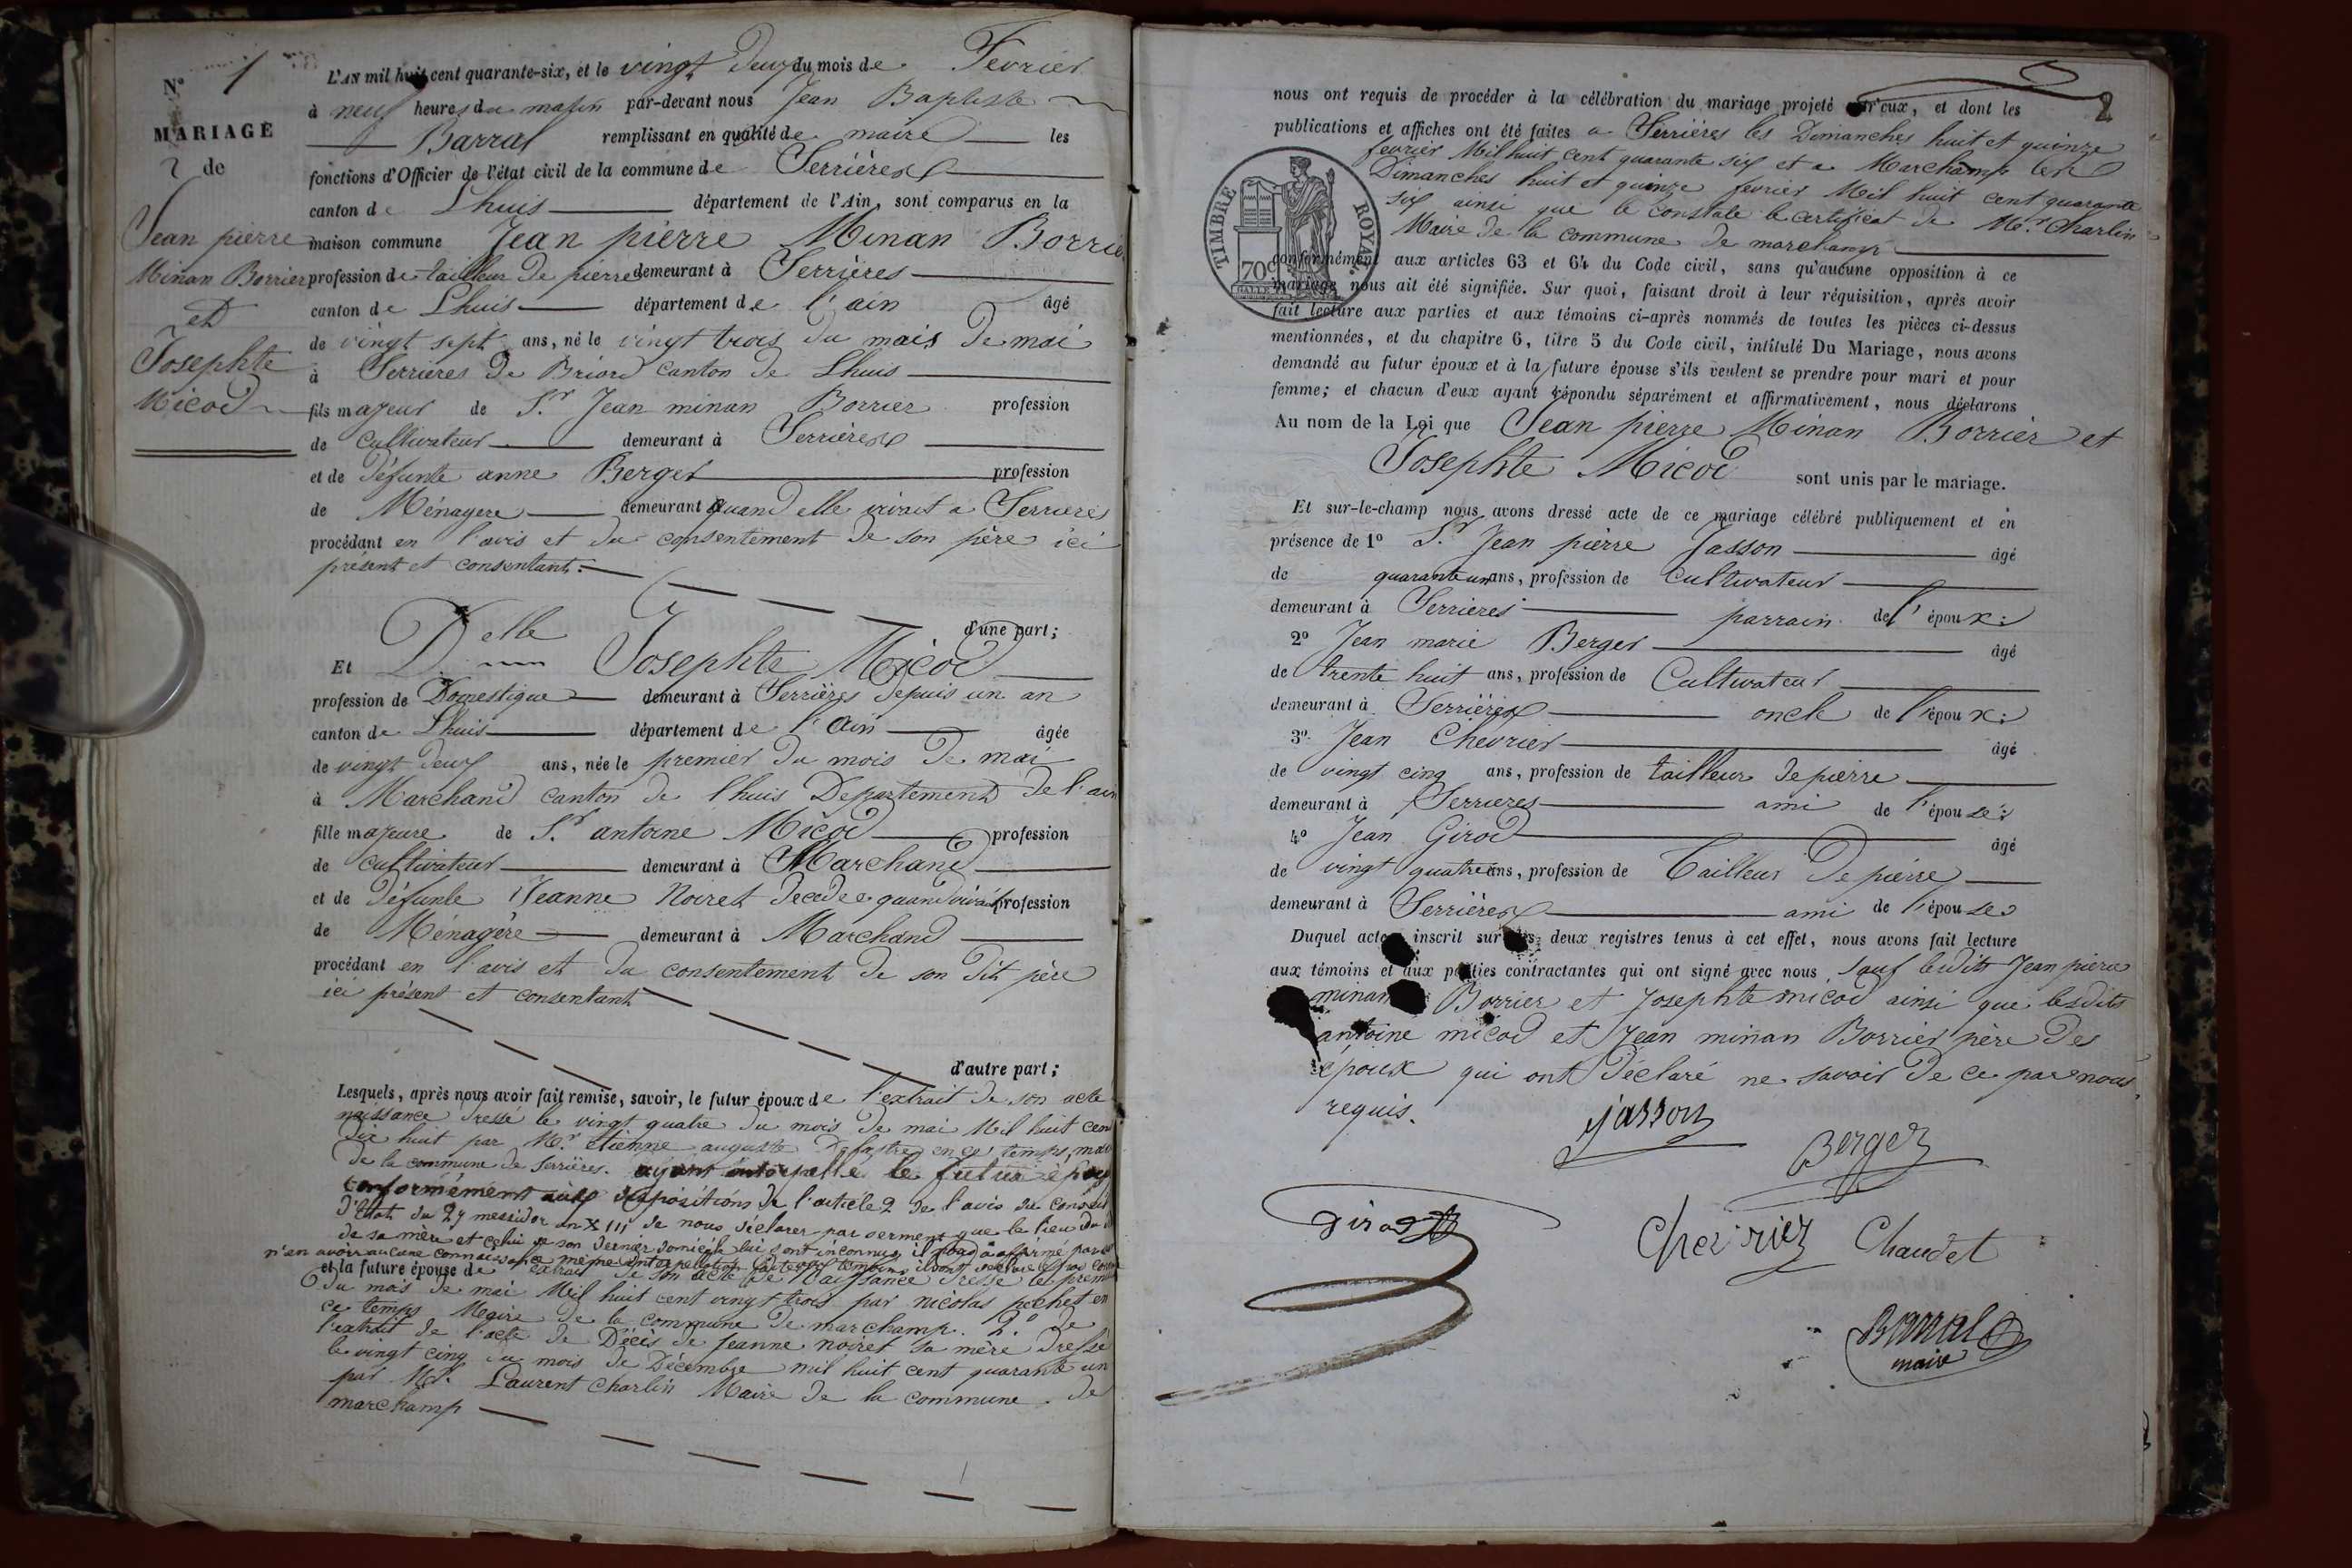 N° 1
MARIAGE
de
Jean pierre
Minan Borrier
et
Josephte
Micod
L'AN mil huit cent quarante-six, et le vingt deux du mois de Fevrier
à neuf heures du matin par-devant nous Jean Baptiste
Barral remplissant en qualité de maire les
fonctions d'Officier de l'état civil de la commune de Serrières
canton de Lhuis département de l'Ain, sont comparus en la
maison commune Jean pierre Minan Borrier
profession de tailleur de pierre demeurant à Serrières
canton de Lhuis département de l'ain âgé
de vingt sept ans, né le vingt trois du mois de mai
à Serrieres de Briord canton de Lhuis
fils majeur de Sr Jean minan Borrier profession
de cultivateur demeurant à Serrières
et de défunte anne Berger profession
de Ménagere demeurant quand elle vivait a Serrieres
procédant en l'avis et du consentement de son père ici
présent et consentant.
d'une part;
Et Delle Josephte Micod
profession de Domestique demeurant à Serrières depuis un an
canton de Lhuis département de l'Ain âgée
de vingt deux ans, née le premier du mois de mai
à Marchand canton de lhuis Departement de l'ain
fille majeure de Sr antoine Micod profession
de cultivateur demeurant à Marchand
et de défunte Jeanne Noiret decedee quand vivait profession
de Ménagère demeurant à Marchand
procédant en l'avis et du consentement de son dit père
ici présent et consentant
d'autre part;
Lesquels, après nous avoir fait remise, savoir, le futur époux de l'extrait de son acte
naissance dressé le vingt quatre du mois de mai Mil huit cent
dix huit par Mr étienne auguste en ce temps, maire
de la commune de Serrières. ayant interpellé le futur époux
conformément aux dispositions de l'article 2 de l'avis du conseil
d'état du 27 messidor an XIII de nous déclarer par serment que le lieu du
de sa mère et celui de son dernier domicile lui sont inconnus, il nous a affirmé par
n'en avoir aucune connaissance même interpellation
et la future épouse de extrait de son acte de Naissance dressé le premier
du mois de mai Mil huit cent vingt trois par nicolas pochet en
ce temps Maire de la commune de marchamp. 2° de
l'extrait de l'acte de Décès de Jeanne noiret sa mère dressé
le vingt cinq du mois de Décembre mil huit cent quarante un
par Mr. Laurent Charlin Maire de la commune de
marchamp
2
nous ont requis de procéder à la célébration du mariage projeté entr'eux, et dont les
publications et affiches ont été faites a Serrières les Dimanches huit et quinze
fevrier Mil huit cent quarante six et a Marchamp les
Dimanches huit et quinze fevrier Mil huit cent quarante
six ainsi que le constate le certificat de Mr. Charlin
Maire de la commune de marchamp
TIMBRE ROYAL.
70c
conformément aux articles 63 et 64 du Code civil, sans qu'aucune opposition à ce
mariage nous ait été signifiée. Sur quoi, faisant droit à leur réquisition, après avoir
fait lecture aux parties et aux témoins ci-après nommés de toutes les pièces ci-dessus
mentionnées, et du chapitre 6, titre 5 du Code civil, intitulé Du Mariage, nous avons
demandé au futur époux et à la future épouse s'ils veulent se prendre pour mari et pour
femme; et chacun d'eux ayant répondu séparément et affirmativement, nous déclarons
Au nom de la Loi que Jean pierre Minan Borrier et
Josephte Micod sont unis par le mariage.
Et sur-le-champ nous avons dressé acte de ce mariage célébré publiquement et en
présence de 1° Sr Jean pierre Jasson âgé
de quarante un ans, profession de Cultivateur
demeurant à Serrieres parrain de l'époux:
2° Jean marie Berger âgé
de trente huit ans, profession de Cultivateur
demeurant à Serrières oncle de l'époux:
3° Jean Chevrier âgé
de vingt cinq ans, profession de tailleur de pierre
demeurant à Serrieres ami de l'épouse:
4° Jean Girod âgé
de vingt quatre ans, profession de Tailleur de pierre
demeurant à Serrières ami de l'épouse
Duquel acte inscrit sur les deux registres tenus à cet effet, nous avons fait lecture
aux témoins et aux parties contractantes qui ont signé avec nous, sauf lesdits Jean pierre
minan Borrier et Josephte micod ainsi que lesdits
antoine micod et Jean minan Borrier père des
époux qui ont déclaré ne savoir de ce par nous
requis.
jasson
Berger
Girod
Chevrier Chaudet
Barral
maire